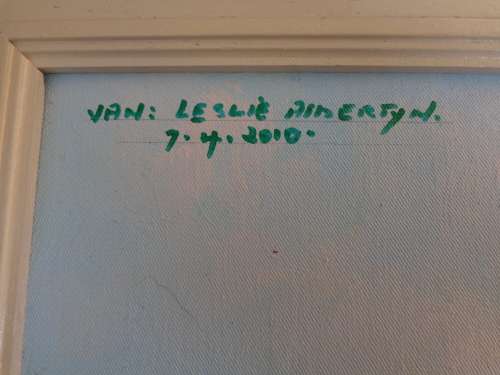 VAN: LESLIE ALBERTYN.
7.4.2010.